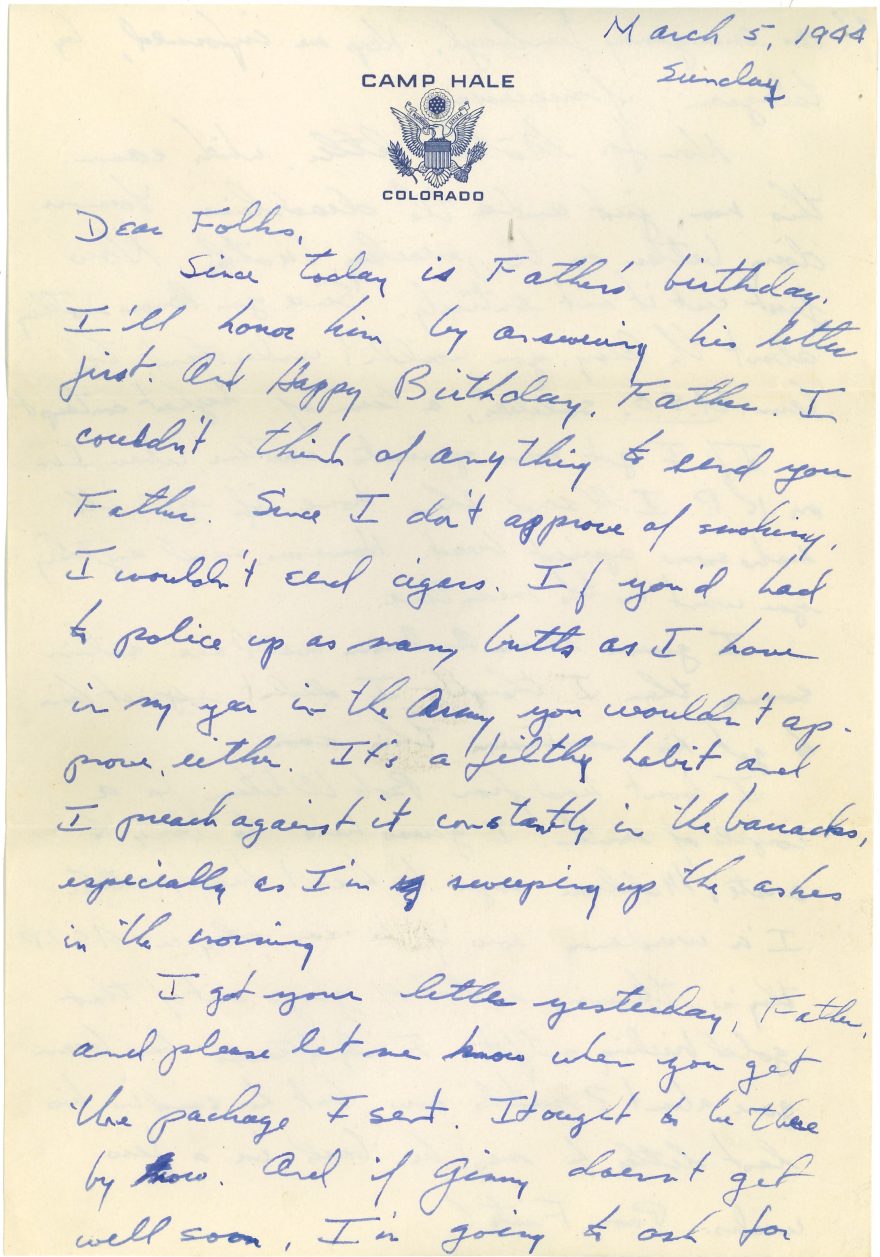 March 5, 1944
Sunday
CAMP HALE
COLORADO
Dear Folks,
Since today is Father's birthday,
I'll honor him by answering his letter
first. And Happy Birthday, Father. I
couldn't think of anything to send you
Father. Since I don't approve of smoking,
I wouldn't send cigars. If you'd had
to police up as many butts as I have
in my year in the Army you wouldn't ap-
prove, either. It's a filthy habit and
I preach against it constantly in the barracks,
especially as I'm sweeping up the ashes
in the morning
I got your letter yesterday, Father,
and please let me know when you get
the package I sent. It ought to be there
by now. And if Ginny doesn't get
well soon, I'm going to ask for